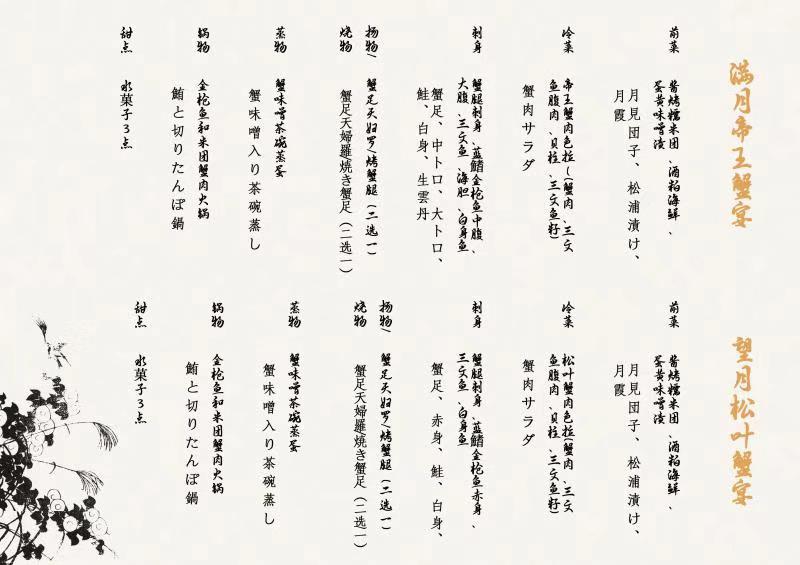 满月帝王蟹宴
前菜
酱烤糯米团、酒粕海鲜、
蛋黄味噌渍
月見団子、松浦漬け、
月霞
冷菜
帝王蟹肉色拉(蟹肉、三文
鱼腹肉、贝柱、三文鱼籽)
蟹肉サラダ
刺身
蟹腿刺身、蓝鳍金枪鱼中腹、
大腹、三文鱼、海胆、白身鱼
蟹足、中トロ、大トロ、
鮭、白身、生雲丹
扬物/
烧物
蟹足天妇罗/烤蟹腿(二选一)
蟹足天婦羅/焼き蟹足(二选一)
蒸物
蟹味噌茶碗蒸蛋
蟹味噌入り茶碗蒸し
锅物
金枪鱼和米团蟹肉火锅
鮪と切りたんぽ鍋
甜点
水菓子3点
望月松叶蟹宴
前菜
酱烤糯米团、酒粕海鲜、
蛋黄味噌渍
月見団子、松浦漬け、
月霞
冷菜
松叶蟹肉色拉(蟹肉、三文
鱼腹肉、贝柱、三文鱼籽)
蟹肉サラダ
刺身
蟹腿刺身、蓝鳍金枪鱼赤身、
三文鱼、白身鱼
蟹足、赤身、鮭、白身、
扬物/
烧物
蟹足天妇罗/烤蟹腿(二选一)
蟹足天婦羅/焼き蟹足(二选一)
蒸物
蟹味噌茶碗蒸蛋
蟹味噌入り茶碗蒸し
锅物
金枪鱼和米团蟹肉火锅
鮪と切りたんぽ鍋
甜点
水菓子3点